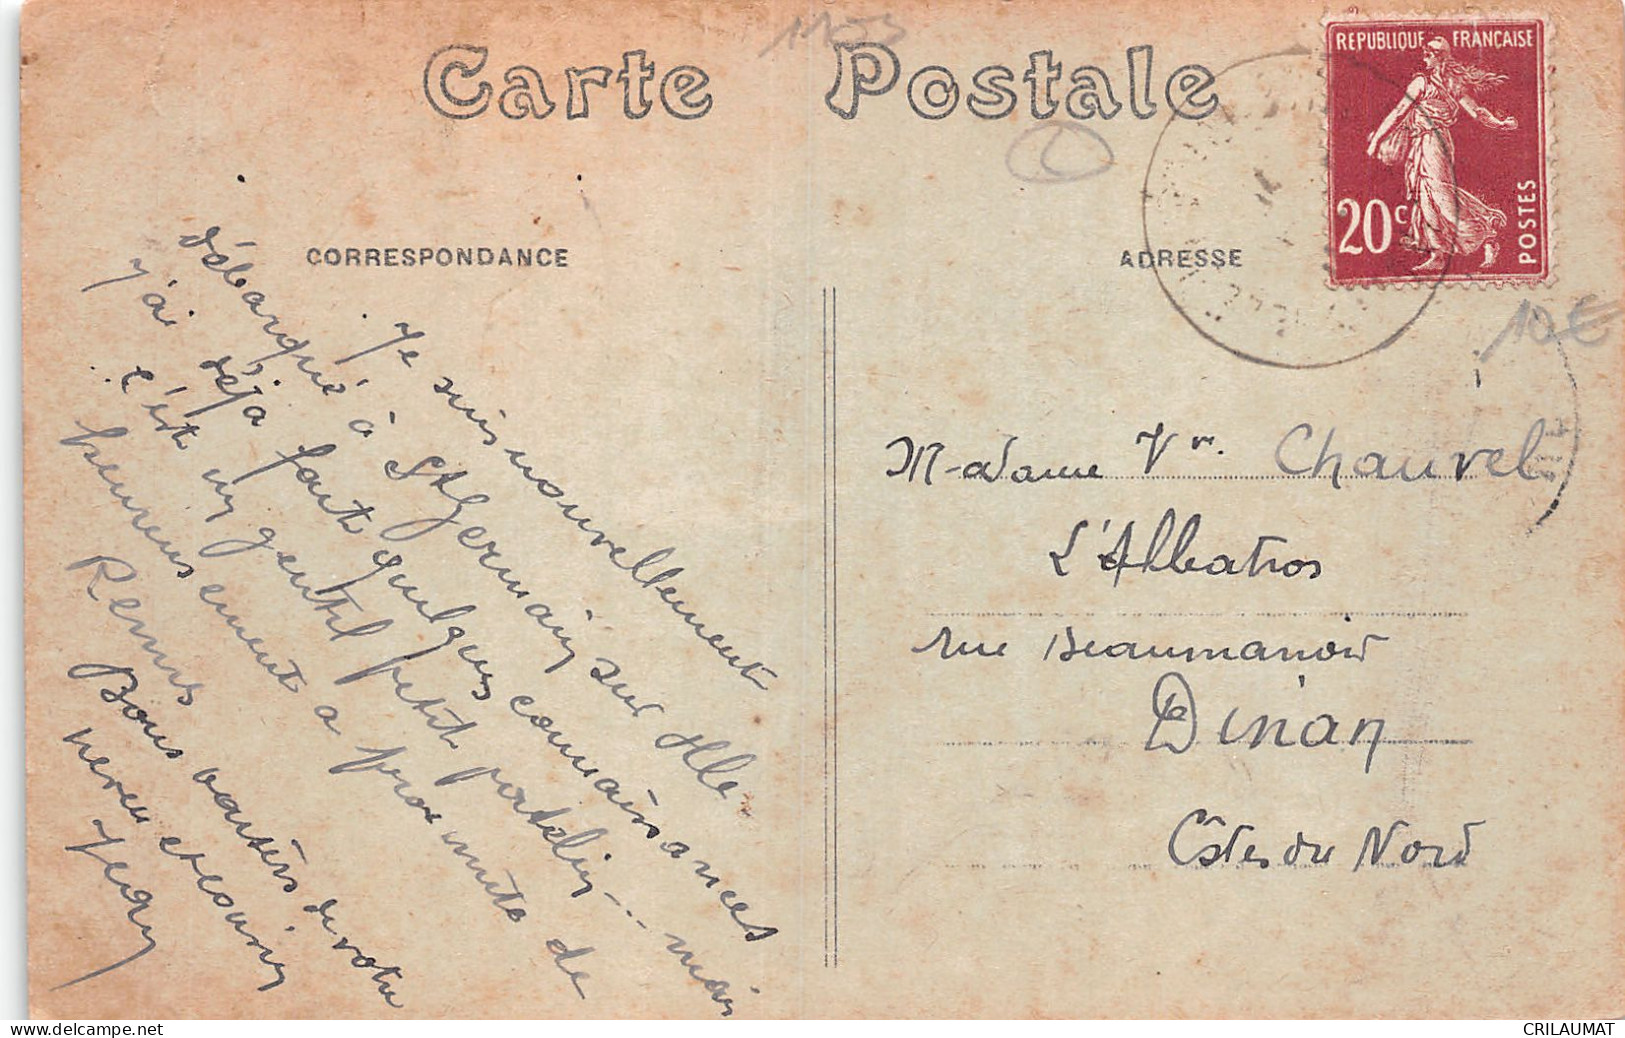 1105
Carte Postale
REPUBLIQUE FRANÇAISE
20c
POSTES
CORRESPONDANCE
ADRESSE
10 €
Je suis nouvellement
débarqué à St Germain sur Ille
J'ai déjà fait quelques connaissances
c'est un gentil petit patelin... mais
heureusement à proximité de
Rennes
Bons baisers de votre
neveu et cousin
Jean
Madame Vve Chauvel
L'Albatros
rue Beaumanoir
Dinan
Côtes du Nord
CRILAUMAT